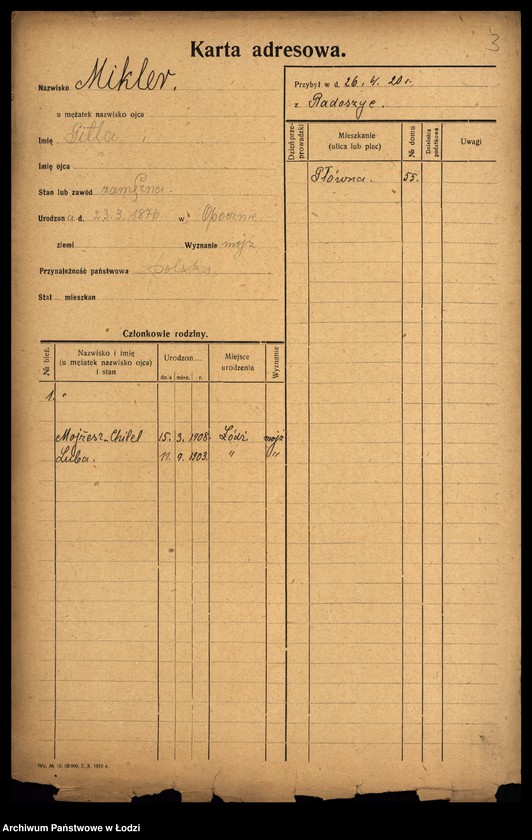 3
Karta adresowa.
Nazwisko Mikler.
u mężatek nazwisko ojca
Imię Gitla
Imię ojca
Stan lub zawód zamężna.
Urodzona d. 23.3.1876 w Opocznie
ziemi Wyznanie mojż
Przynależność państwowa polska
Stał mieszkan
Członkowie rodziny.
№ bież. Nazwisko i imię (u mężatek nazwisko ojca) i stan Urodzon dnia mies. r. Miejsce urodzenia Wyznanie
1. "
Mojżesz-Chilel 15. 3. 1908. Łódź mojż
Luba. 11. 9. 1903. " "
Przybył w d. 26. 4. 20 r.
z Radoszyc.
Dzień przeprowadzki Mieszkanie (ulica lub plac) № domu Dzielnica podatkowa Uwagi
Główna. 55.
Archiwum Państwowe w Łodzi